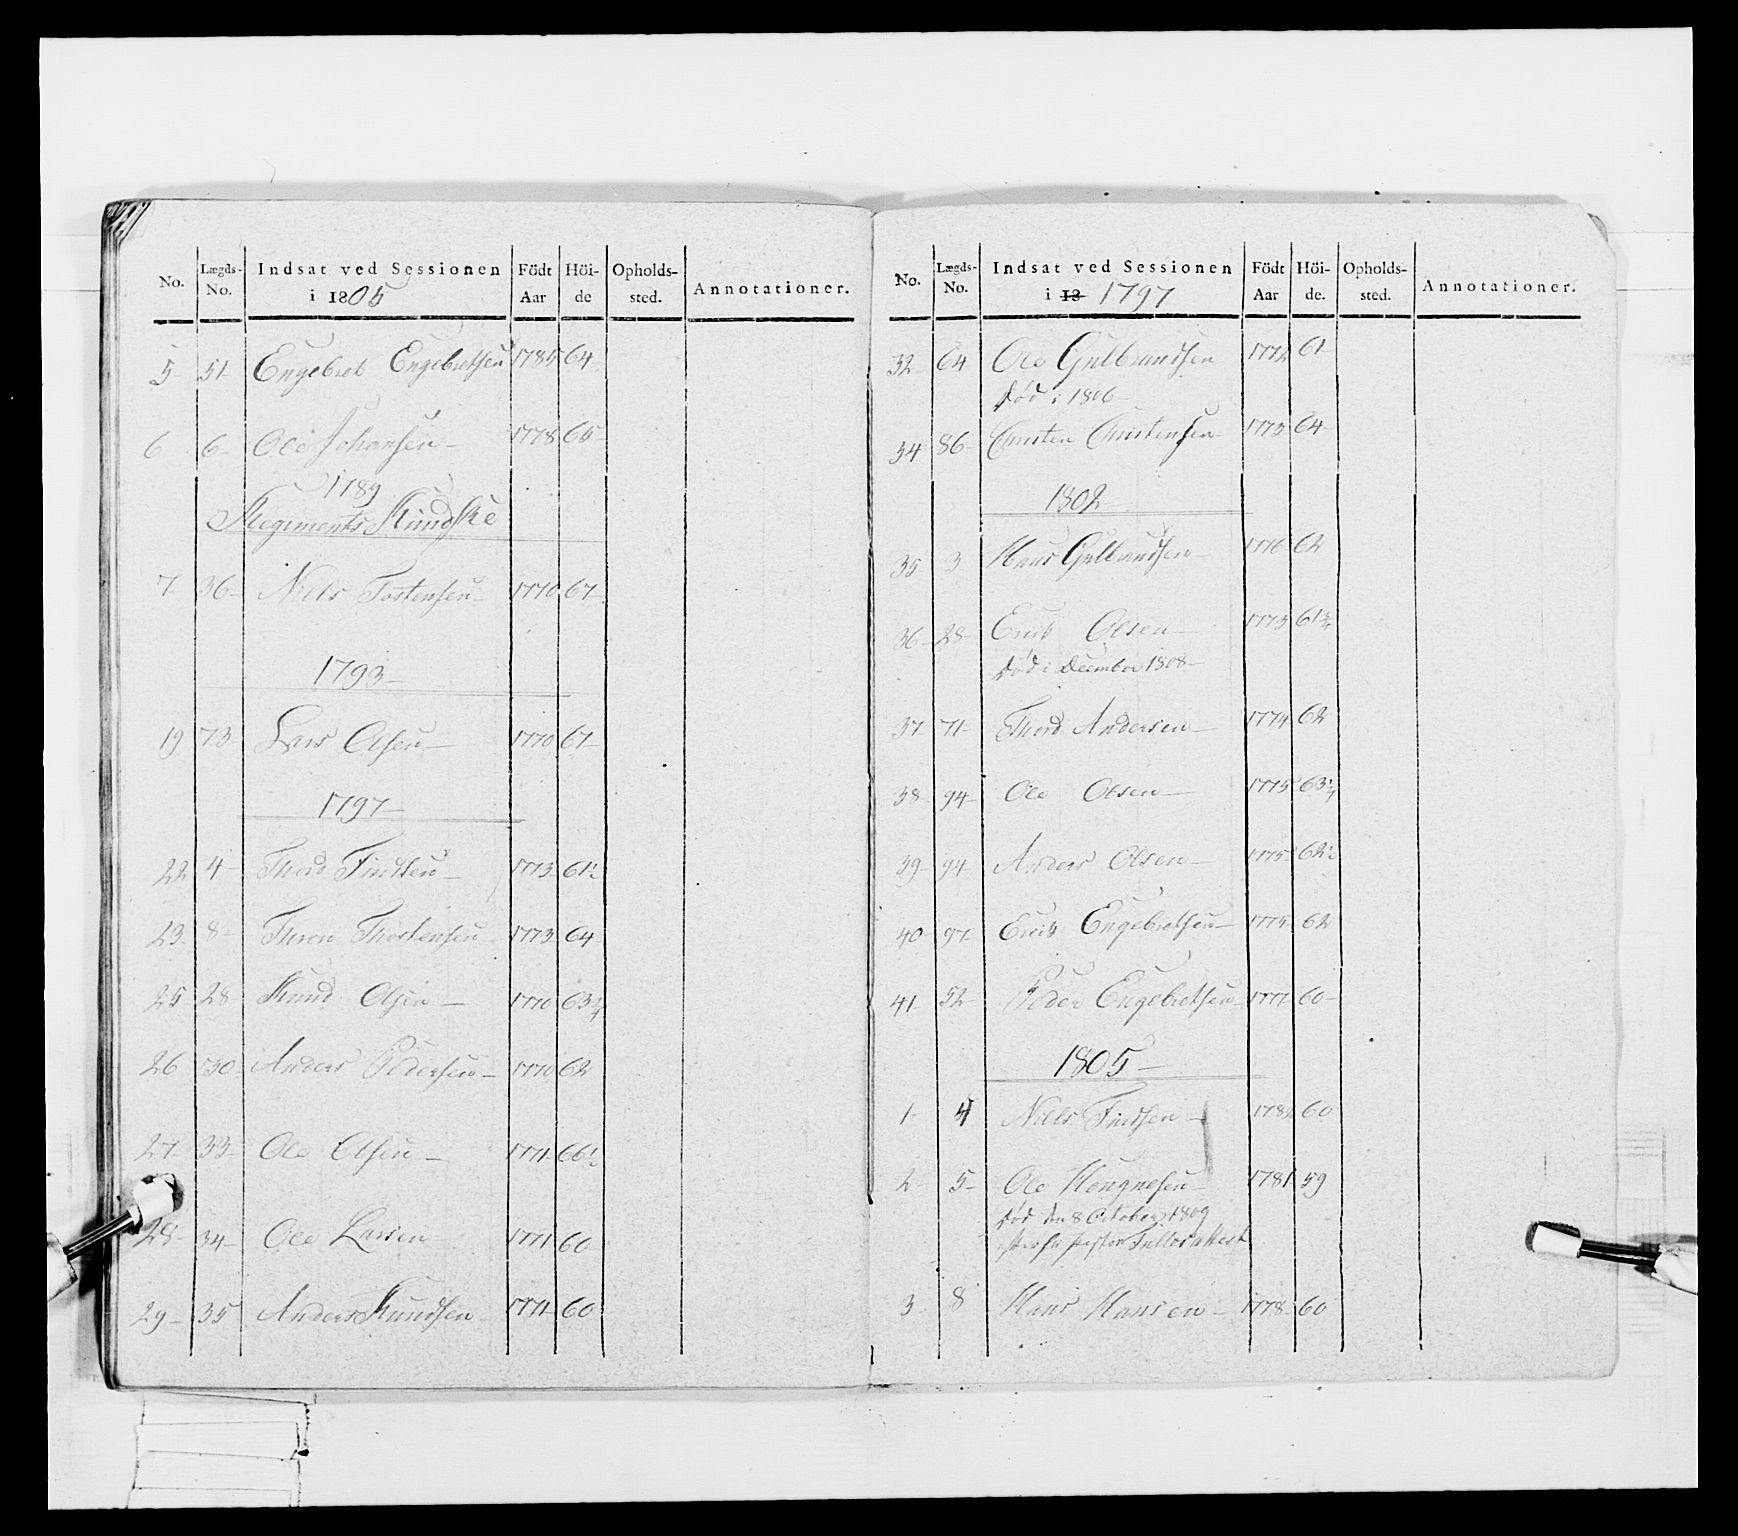 No. | Lægds-No. | Indsat ved Sessionen i 1805 | Födt Aar | Höi-de | Opholds-sted. | Annotationer.
5 | 51 | Engebret Engebretsen | 1785 | 64
6 | 6 | Ole Johansen | 1778 | 65
1789
Regiments
7 | 36 | Niels Tostensen | 1770 | 67
1793
19 | 73 | Lars Olsen | 1770 | 67
1797
22 | 4 | Thord Findsen | 1773 | 61½
23 | 8 | Thron Thostensen | 1773 | 64
25 | 28 | Knud Olsen | 1770 | 63¼
26 | 30 | Anders Pedersen | 1770 | 62
27 | 33 | Ole Olsen | 1771 | 66½
28 | 34 | Ole Larsen | 1771 | 60
29 | 35 | Anders Knudsen | 1771 | 60
No. | Lægds-No. | Indsat ved Sessionen i 18 1797 | Födt Aar | Höi-de. | Opholds-sted. | Annotationer.
32 | 64 | Ole Gulbrandsen | 1772 | 61
død i 1806
34 | 86 | Christen Christensen | 1773 | 64
1802
35 | 3 | Hans Gulbrandsen | 1776 | 62
36 | 28 | Erik Olsen | 1773 | 61
død i December 1808
37 | 71 | Thord Andersen | 1774 | 62
38 | 94 | Ole Olsen | 1775 | 63¼
39 | 94 | Anders Olsen | 1775 | 62½
40 | 97 | Erik Engebretsen | 1775 | 62
41 | 52 | Peder Engebretsen | 1777 | 60
1805
1 | 4 | Niels Findsen | 1782 | 60
2 | 5 | Ole | 1781 | 59
død den 8 October 1809
attest
3 | 8 | Hans Hansen | 1778 | 60